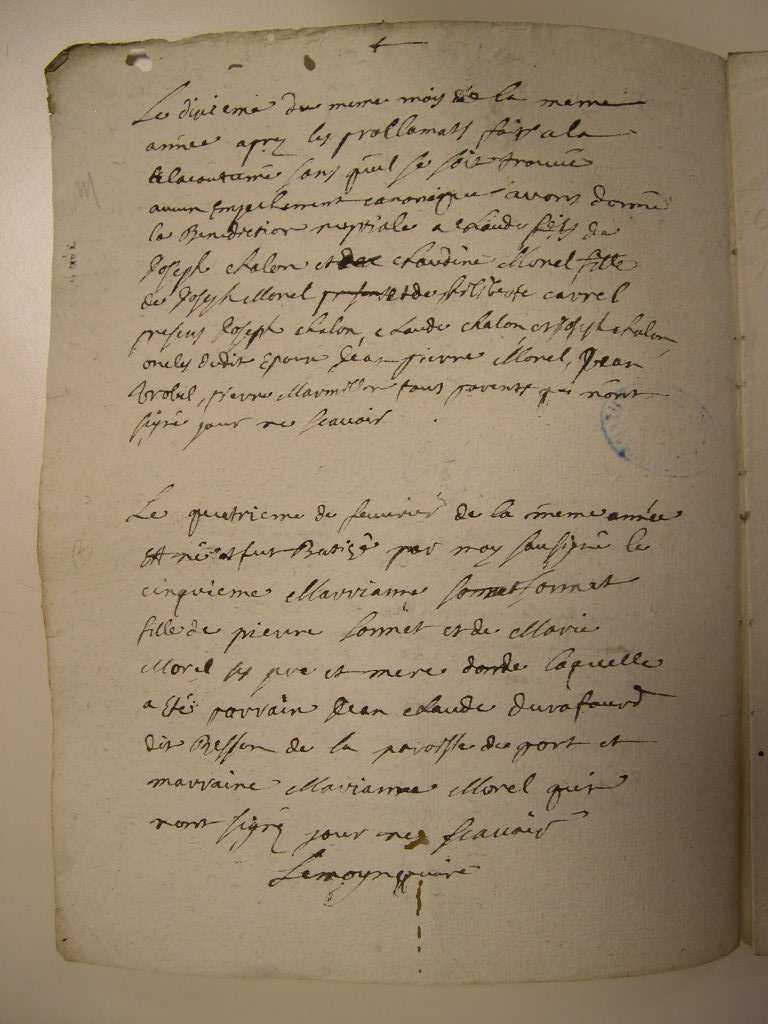 Le dixieme du meme mois de la meme
année aprez les proclamats fais a la
de la coutume sans quil se soit trouvé
aucun empechement canonique avons donné
la Benediction nuptiale a claude fils de
Joseph chalon et de claudine Morel fille
de Joseph Morel et de philiberte carrel
presens Joseph chalon, claude chalon et joseph chalon
oncles dudit Epoux Jean pierre Morel, Jean
pierre Marmillon tous parents qui n'ont
signé pour ne scavoir
Le quatrieme de feuvrier de la meme année
Est né et fut Batisé par moy sousigné le
cinquieme Marrianne sonnet
fille de pierre sonnet et de Marie
Morel ses pere et mere de laquelle
a été parrain Jean claude durafourd
dit Besson de la paroisse du port et
marraine Marianne Morel qui
nont signé pour ne scavoir
Lemoyne curé